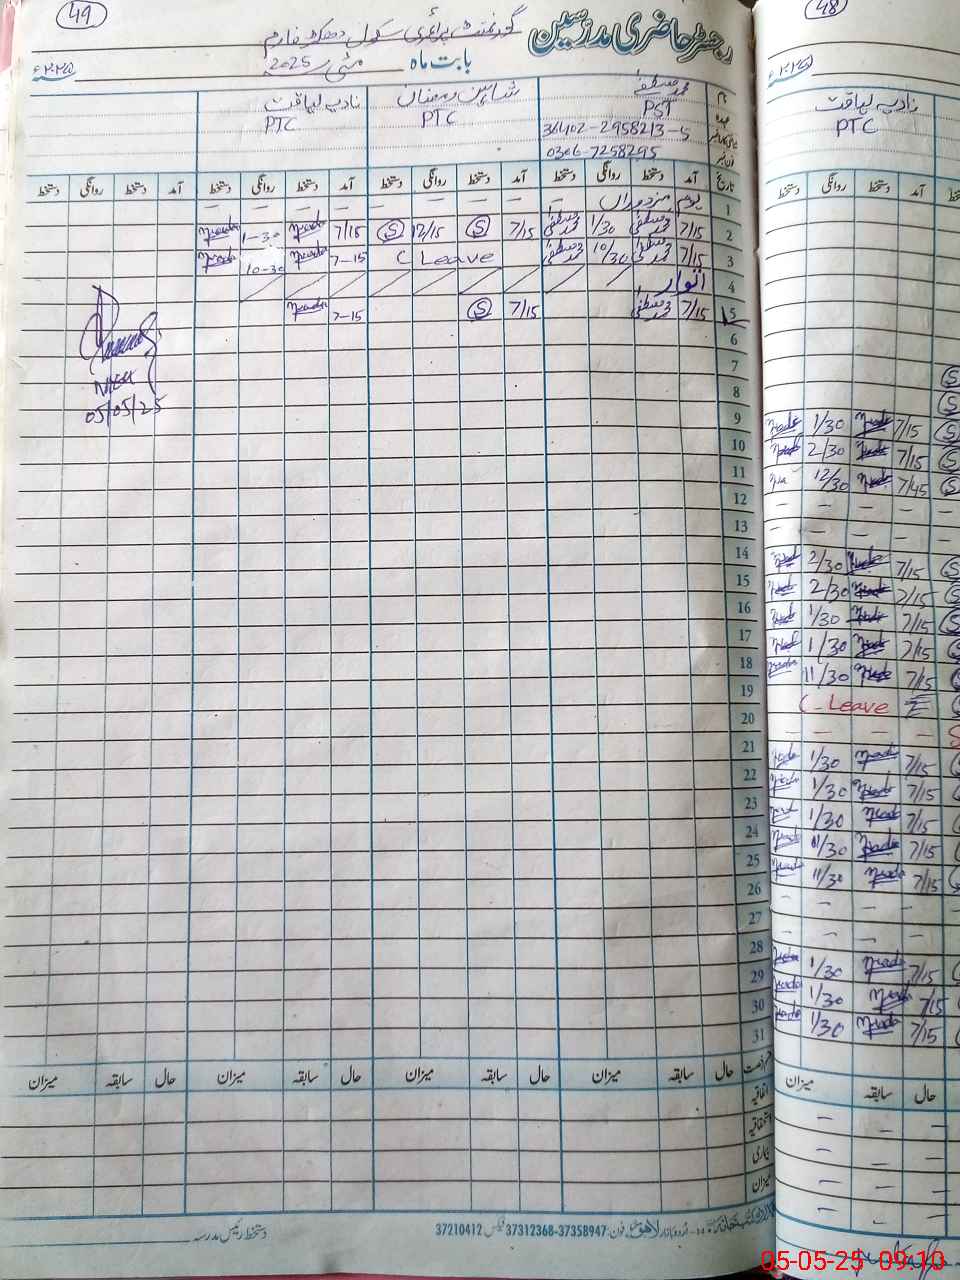 49
رجسٹر حاضری مدرسین
گورنمنٹ پرائمری سکول
بابت ماہ مئی 2025
نام محمد مصطفیٰ شاہین رمضان نادیہ لیاقت
PST PTC PTC
36402-2958213-5
0306-7258295
تاریخ آمد دستخط روانگی دستخط آمد دستخط روانگی دستخط آمد دستخط روانگی دستخط آمد دستخط روانگی دستخط
1 یوم مزدوراں — — — — — — — —
2 7/15 محمد مصطفیٰ 1/30 محمد مصطفیٰ 7/15 S 12/15 S 7/15 Nadia 1-30 Nadia
3 7/15 محمد مصطفیٰ 10/30 محمد مصطفیٰ C Leave 7-15 Nadia 10-30 Nadia
4 اتوار
5 7/15 محمد مصطفیٰ 7/15 S 7-15 Nadia
6
7
8
9
10
11
12
13
14
15
16
17
18
19
20
21
22
23
24
25
26
27
28
29
30
31
05/05/25
حال سابقہ میزان حال سابقہ میزان حال سابقہ میزان حال سابقہ میزان
اتفاقیہ
استحقاقیہ
بیماری
میزان
اردو بازار لاہور فون: 37358947-37312368 فیکس 37210412
دستخط رئیس مدرسہ
48
نادیہ لیاقت
PTC
آمد دستخط روانگی دستخط
7/15 Nadia 1/30 Nadia
7/15 Nadia 2/30 Nadia
7/45 Nadia 12/30
— — — —
— — — —
7/15 Nadia 2/30 Nadia
7/15 Nadia 2/30 Nadia
7/15 Nadia 1/30 Nadia
7/15 Nadia 1/30 Nadia
7/15 Nadia 11/30 Nadia
C-Leave
— — — —
7/15 Nadia 1/30 Nadia
7/15 Nadia 1/30 Nadia
7/15 Nadia 1/30 Nadia
7/15 Nadia 11/30 Nadia
7/15 Nadia 11/30 Nadia
— — — —
— — — —
7/15 Nadia 1/30 Nadia
7/15 Nadia 1/30 Nadia
7/15 Nadia 1/30 Nadia
حال سابقہ میزان
05-05-25 09:10